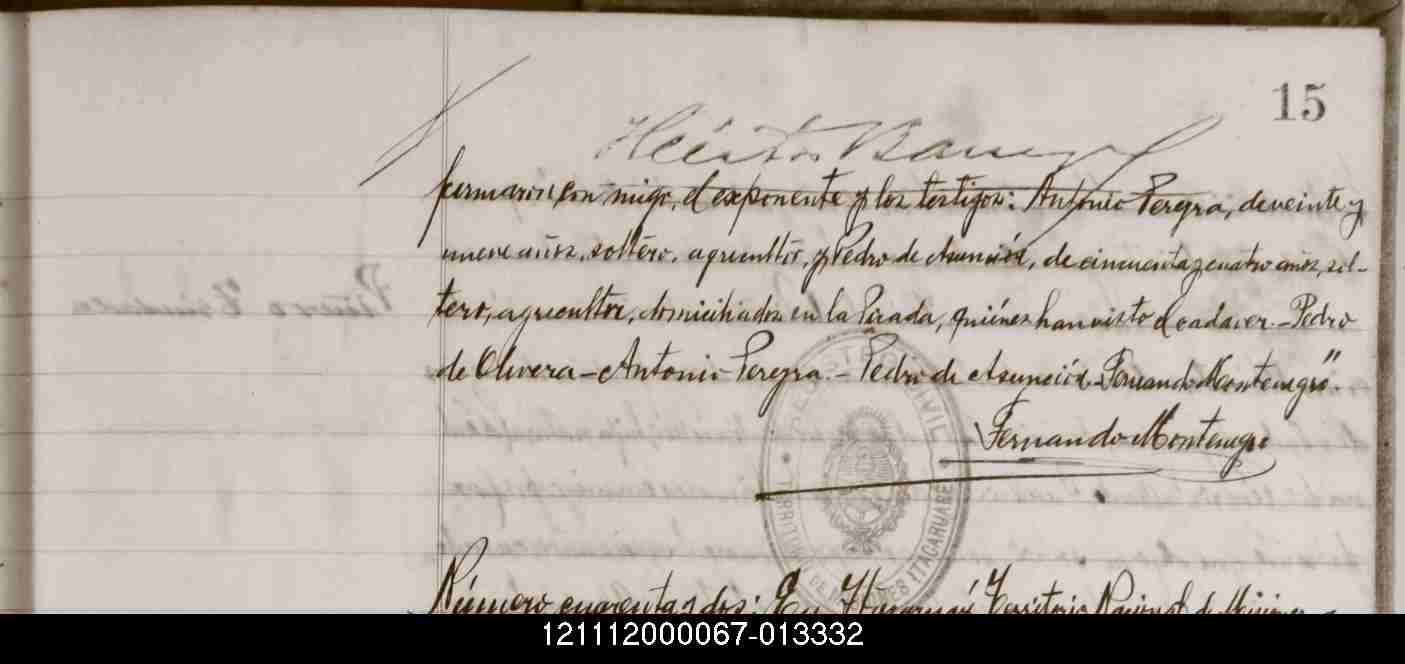 15
Héctor
firmaron conmigo, el exponente y los testigos: Antonio Pereyra, de veinte y
nueve años, soltero, agricultor, y Pedro de Asunción, de cincuenta y cuatro años, sol-
tero, agricultor, domiciliados en la Picada, quiénes han visto el cadaver.-Pedro
de Olivera-Antonio Pereyra.-Pedro de Asunción.-Fernando Montenegro".
Fernando Montenegro
REGISTRO CIVIL
TERRITORIO DE MISIONES ITACARUARE
Número cuarenta y dos: En Itacaruaré Territorio Nacional de Misiones a
121112000067-013332